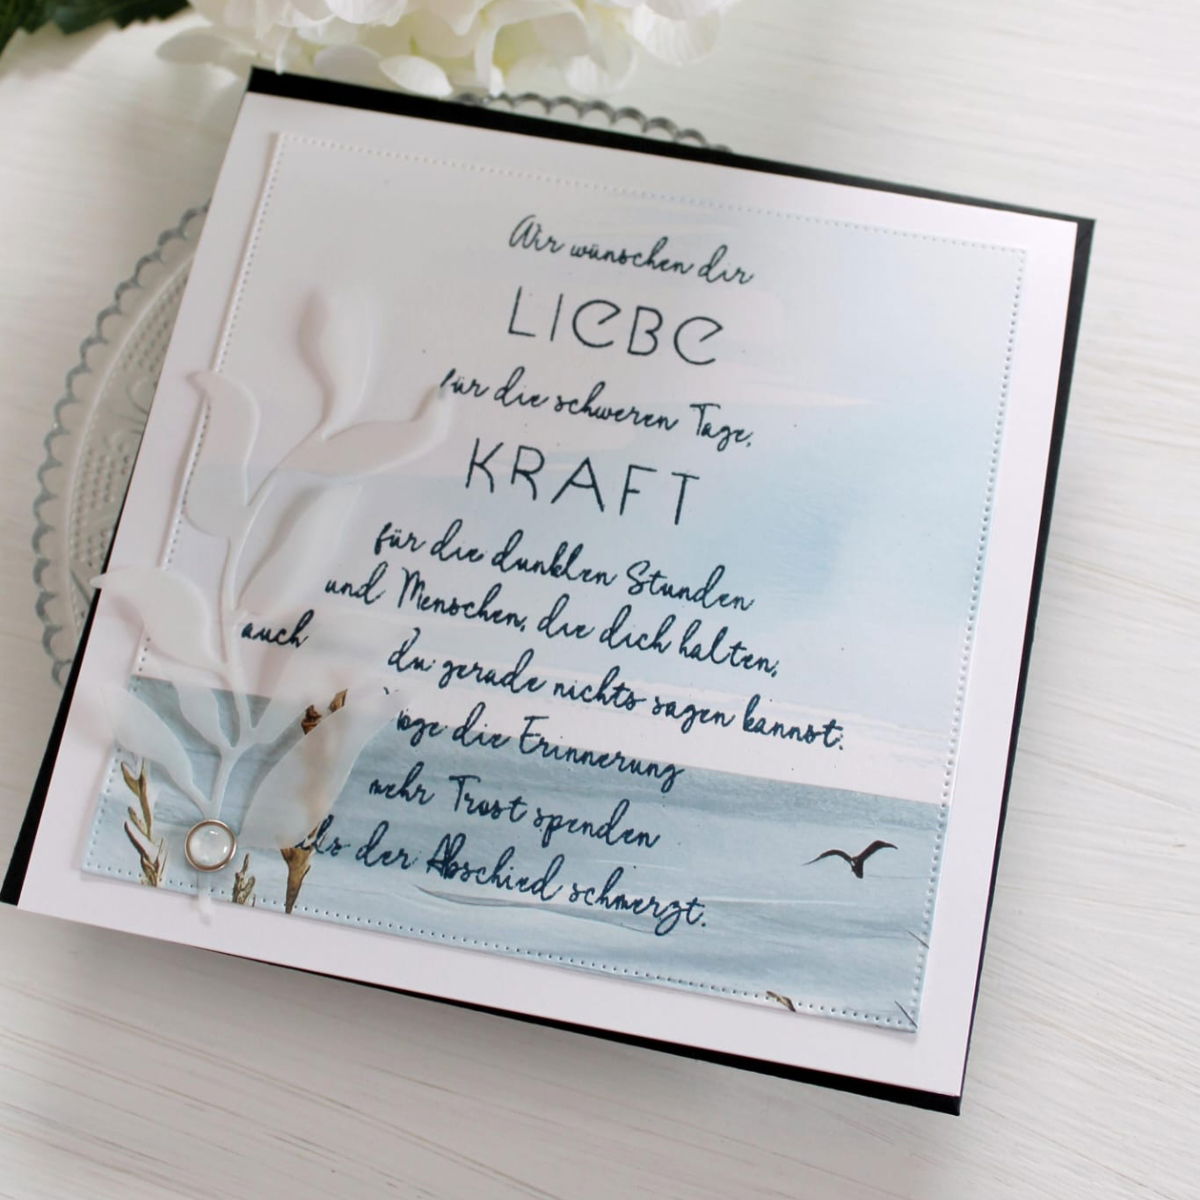 Wir wünschen dir
LIEBE
für die schweren Tage,
KRAFT
für die dunklen Stunden
und Menschen, die dich halten,
auch du gerade nichts sagen kannst.
die Erinnerung
mehr Trost spenden
als der Abschied schmerzt.